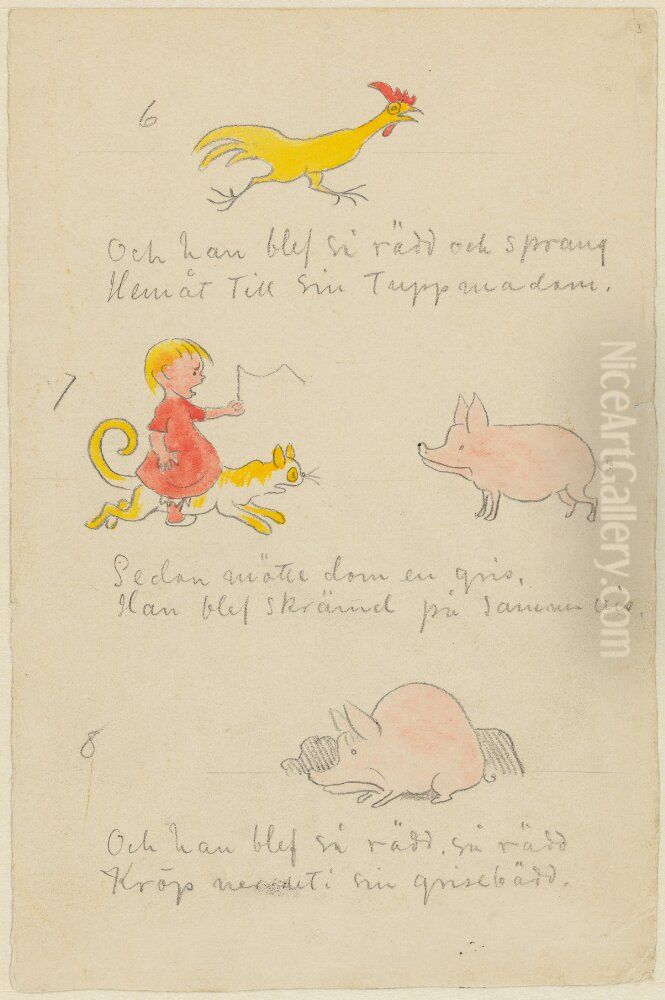 3
6
Och han blef så rädd och sprang
Hemåt Till sin Tuppmadam.
7
Sedan mötte dom en gris,
Han blef skrämd på samma vis.
8
Och han blef så rädd, så rädd
Kröp ner i sin grisebädd.
NiceArtGallery.com